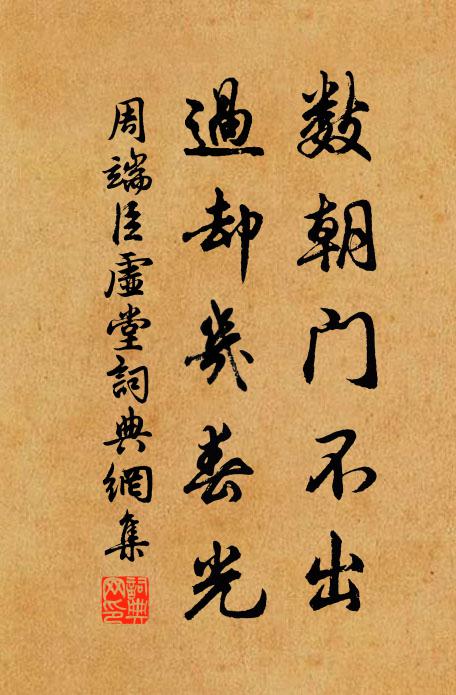 数朝門不出
過却幾春光
周端臣虛堂詞典網集
詞典
网印